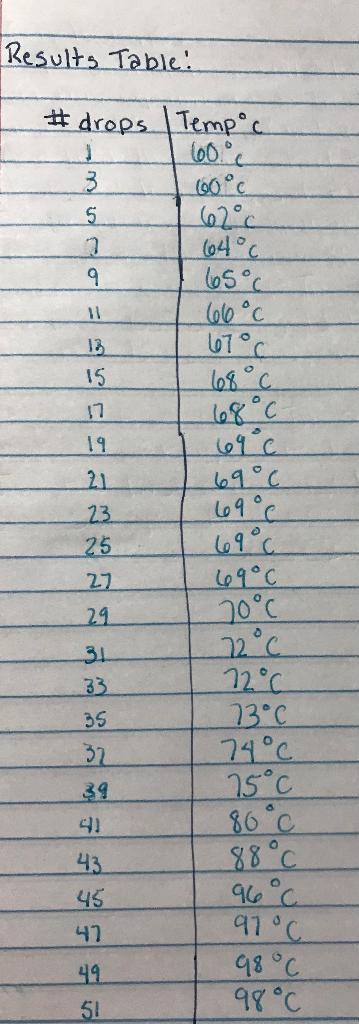 Results Table:
# drops Temp°C
1 60°C
3 60°C
5 62°C
7 64°C
9 65°C
11 66°C
13 67°C
15 68°C
17 68°C
19 69°C
21 69°C
23 69°C
25 69°C
27 69°C
29 70°C
31 72°C
33 72°C
35 73°C
37 74°C
39 75°C
41 80°C
43 88°C
45 96°C
47 97°C
49 98°C
51 98°C